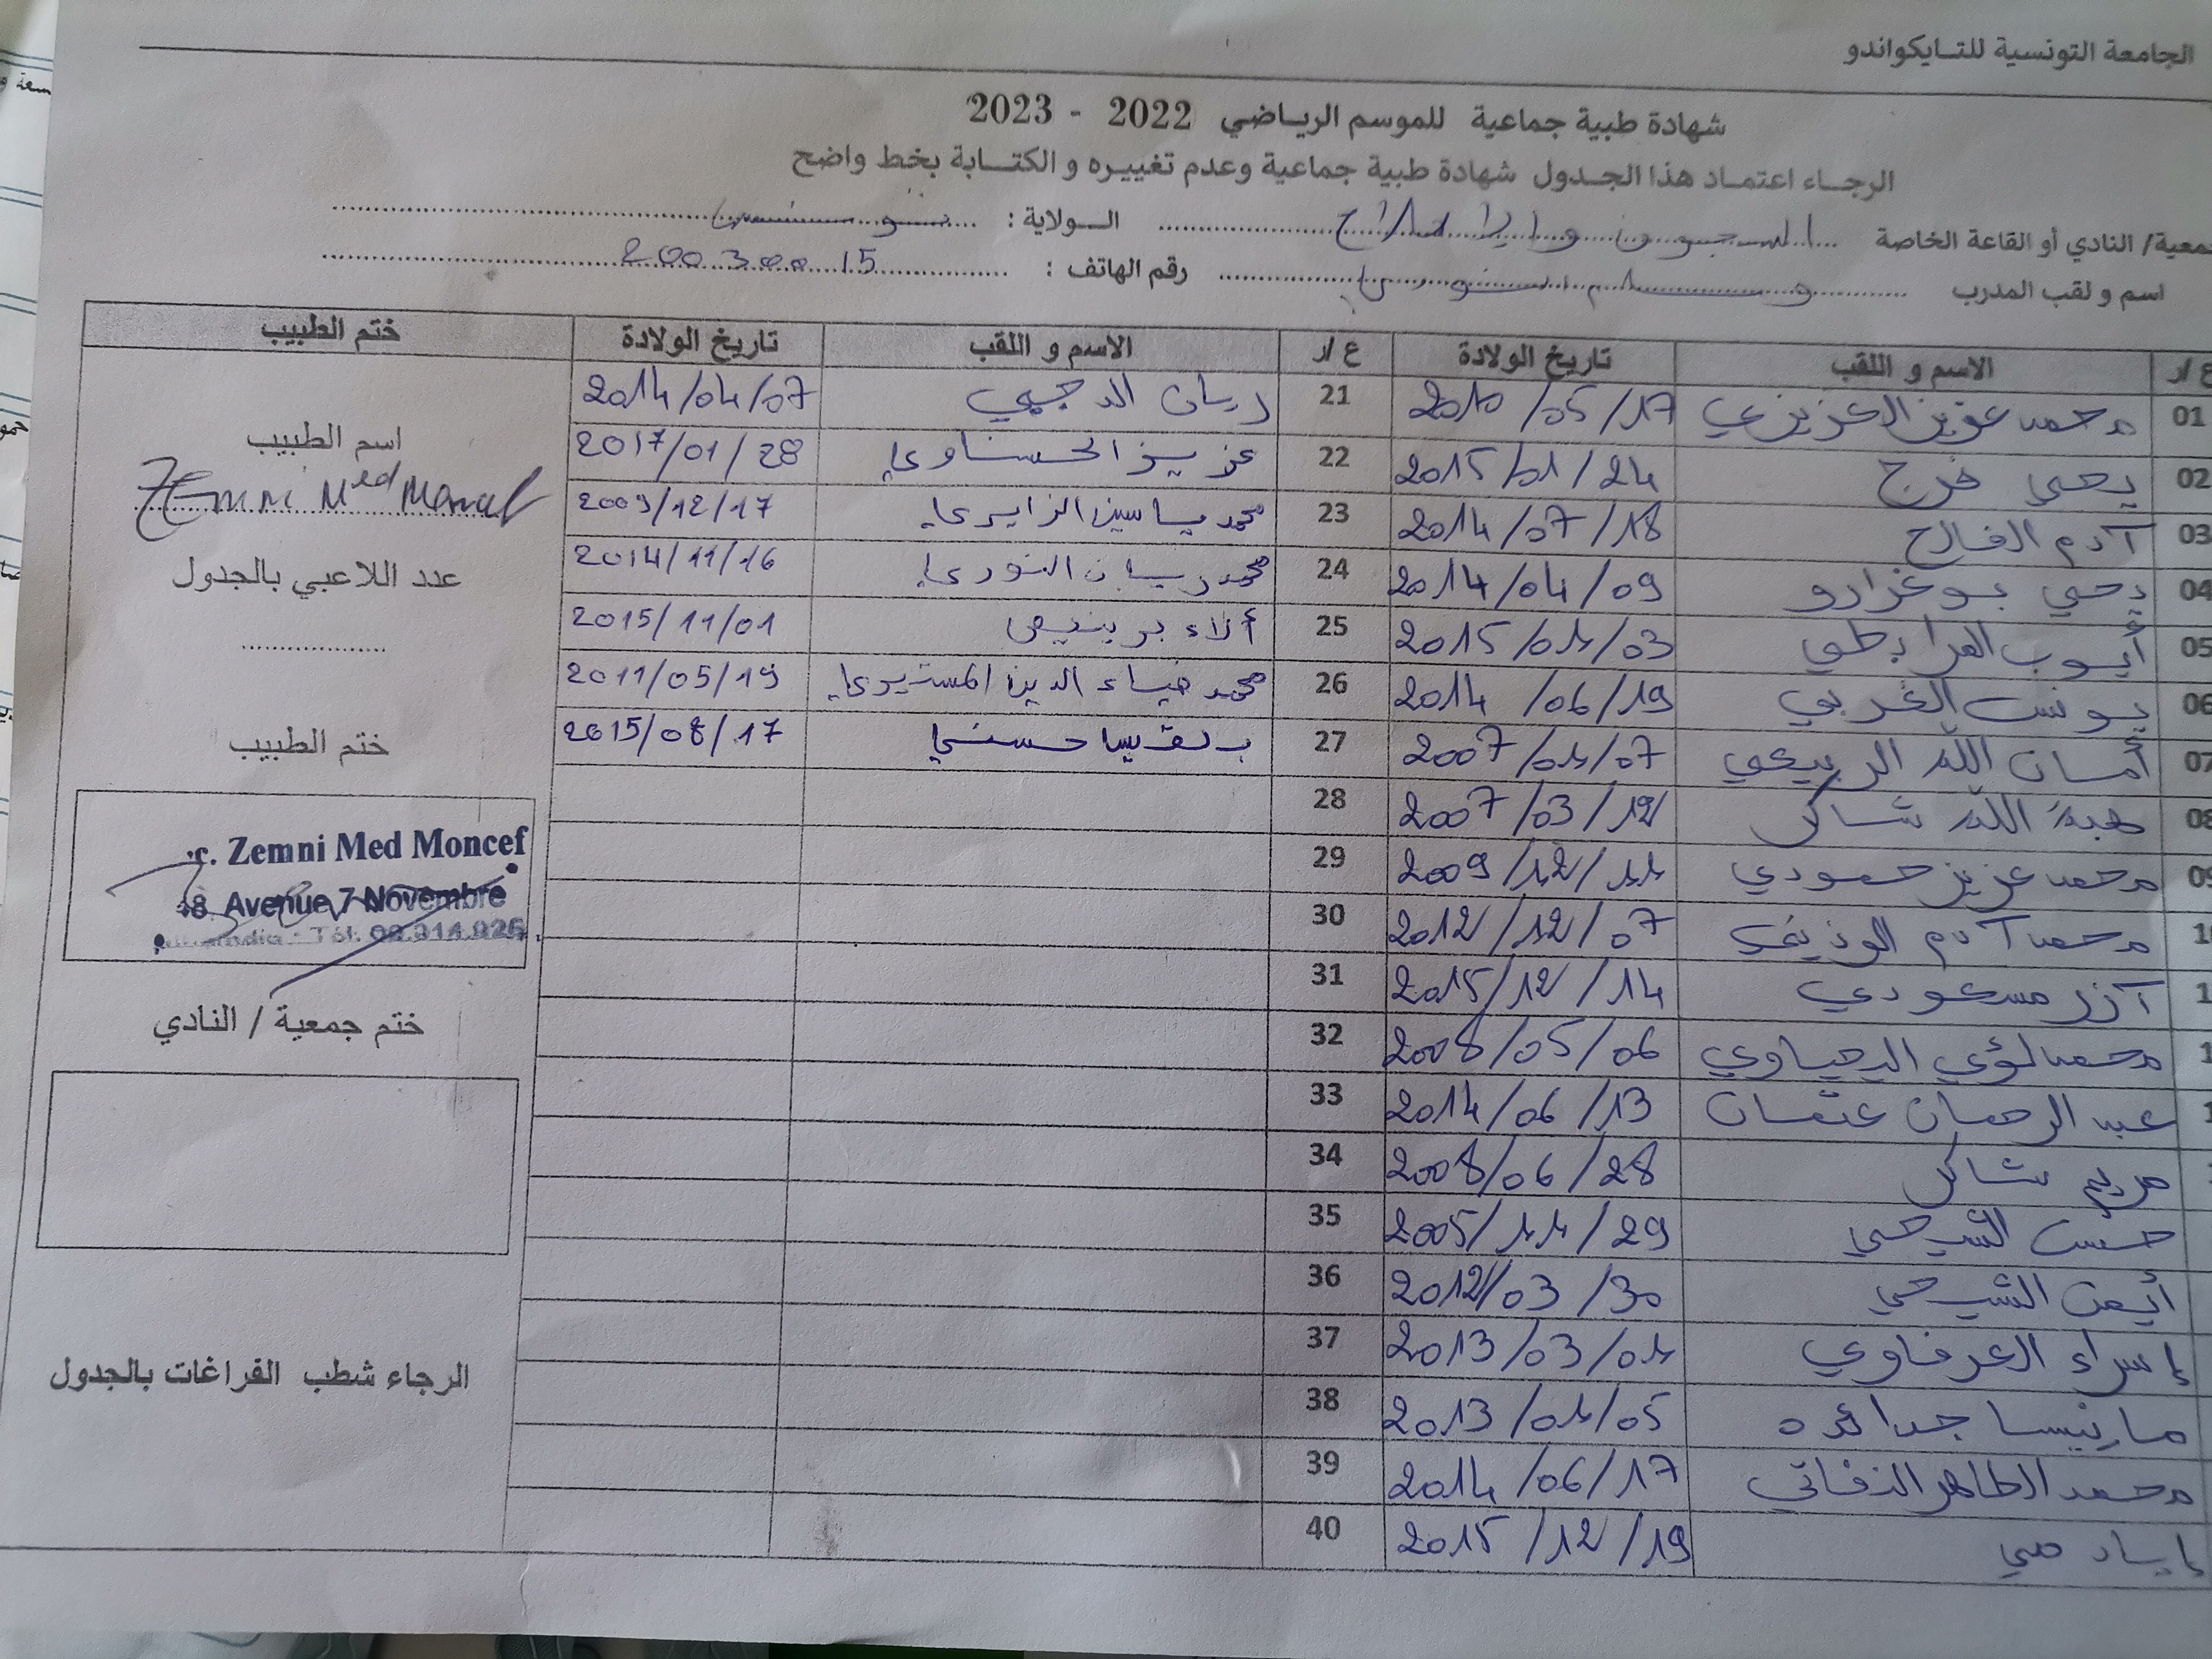 الجامعة التونسية للتايكواندو
شهادة طبية جماعية للموسم الرياضي 2022 - 2023
الرجاء اعتماد هذا الجدول شهادة طبية جماعية وعدم تغييره و الكتابة بخط واضح
معية/ النادي أو القاعة الخاصة السجون والإصلاح الولاية : تونس
اسم و لقب المدرب وسام رقم الهاتف : 20030015
ع /ر الاسم و اللقب تاريخ الولادة ع /ر الاسم و اللقب تاريخ الولادة ختم الطبيب
01 محمد عزيز العزيزي 2010/05/17 21 ريان الدجبي 2014/04/07
02 يحيى فرج 2015/01/24 22 عزيز الحسناوي 2017/01/28
03 آدم الفالح 2014/07/18 23 محمد ياسين الزايري 2009/12/17
04 يحي بوغزارو 2014/04/09 24 محمد ريان النوري 2014/11/16
05 أيوب المرابطي 2015/04/03 25 ألاء بر 2015/11/01
06 يونس الغربي 2014/06/19 26 محمد ضياء الدين المستيري 2011/05/19
07 أمان الله الربيعي 2007/04/07 27 بلقيس حسني 2015/08/17
08 هبة الله شاكر 2007/03/12 28
09 محمد عزيز حمودي 2009/12/11 29
محمد آدم الوذيفي 2012/12/07 30
آزر مسعودي 2015/12/14 31
محمد لؤي اليحياوي 2008/05/06 32
عبد الرحمان عثمان 2014/06/13 33
مريم شاكر 2008/06/28 34
الشيحي 2005/11/29 35
أيمن الشيحي 2012/03/30 36
إسراء العرفاوي 2013/03/04 37
مارنيسا 2013/04/05 38
محمد الطاهر الزفاتي 2014/06/17 39
إياد 2015/12/19 40
اسم الطبيب
Zemni Med Moncef
عدد اللاعبي بالجدول
ختم الطبيب
r. Zemni Med Moncef
Avenue 7 Novembre
Tél:
ختم جمعية / النادي
الرجاء شطب الفراغات بالجدول